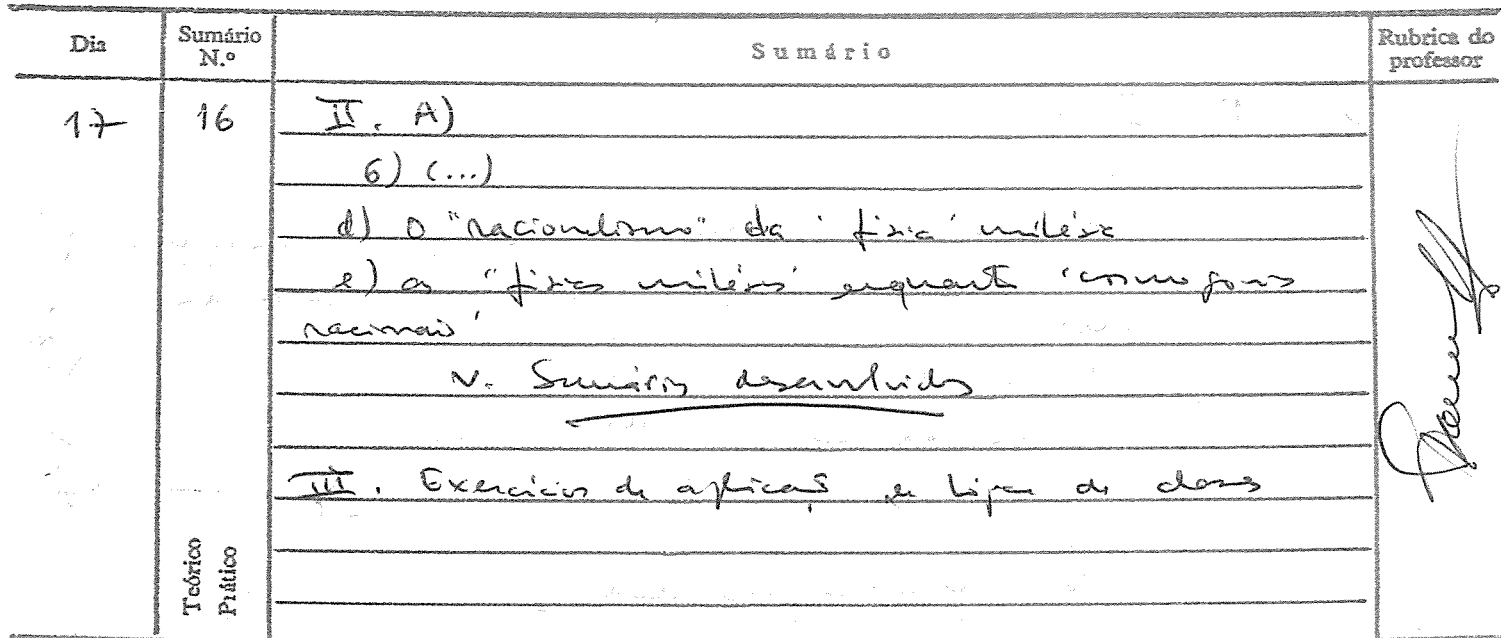 Dia
Sumário N.º
Sumário
Rubrica do professor
17
16
II. A)
6) (...)
d) O "racionalismo" da 'física' milésia
e) as "físicas milésias" enquanto 'cosmogonias
racionais'
V. Sumários desenvolvidos
III. Exercícios de aplicação de lógica de classes
Teórico
Prático